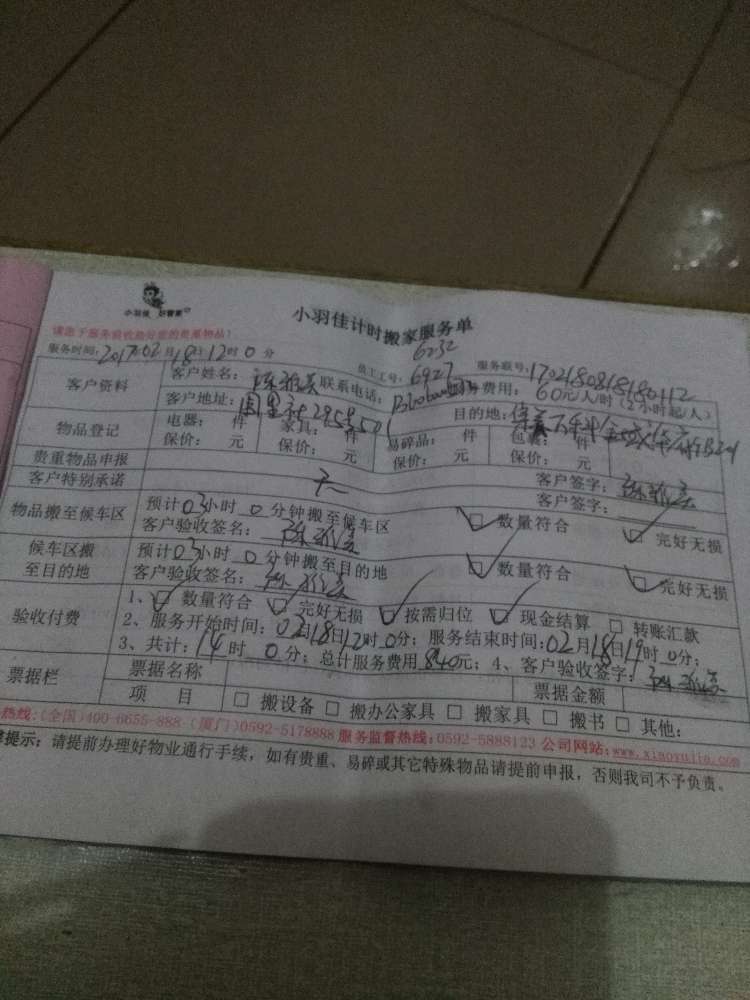 小羽佳 好管家
小羽佳计时搬家服务单
请您于服务前收拾好您的贵重物品!
6232
服务时间:2017年02月18日12时0分 员工工号:6927 服务联号:170218081818011 2
客户资料 客户姓名: 联系电话: 服务费用:60元/人/时(2小时起/人)
客户地址: 目的地:
物品登记 电器: 件 家具: 件 易碎品: 件 包裹: 件
保价: 元 保价: 元 保价: 元 保价: 元
贵重物品申报 客户签字:
客户特别承诺 无 客户签字:
物品搬至候车区 预计03小时 0分钟搬至候车区 数量符合 完好无损
客户验收签名:
候车区搬至目的地 预计03小时 0分钟搬至目的地 数量符合 完好无损
客户验收签名:
验收付费 1、数量符合 完好无损 按需归位 现金结算 转账汇款
2、服务开始时间:02月18日12时0分;服务结束时间:02月18日19时0分;
3、共计:14时 0分;总计服务费用840元;4、客户验收签字:
票据栏 票据名称 票据金额
项 目 搬设备 搬办公家具 搬家具 搬书 其他:
热线:(全国)400-6655-888 (厦门)0592-5178888 服务监督热线:0592-5888123 公司网站:www.xiaoyujia.com
提示:请提前办理好物业通行手续,如有贵重、易碎或其它特殊物品请提前申报,否则我司不予负责。